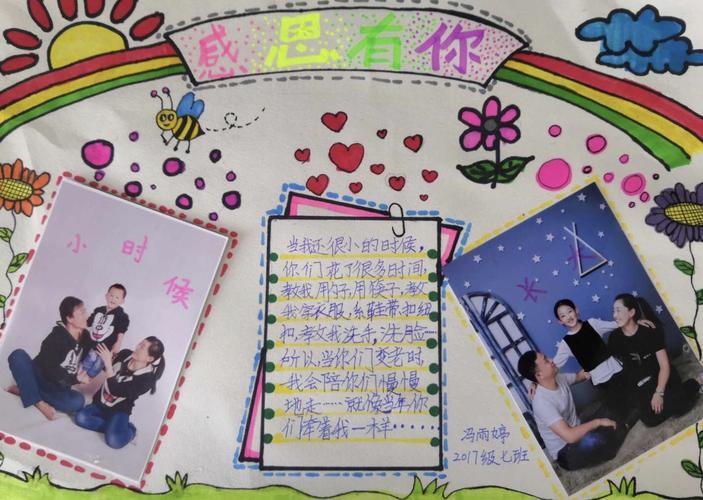 感恩有你
小时候
当我还很小的时候,
你们花了很多时间
教我用勺子,用筷子,教
我穿衣服,系鞋带,扣纽
扣,教我洗手,洗脸……
所以,当你们变老时
我会陪你们慢慢
地走……就像当年你
们牵着我一样……
长大
冯雨婷
2017级七班